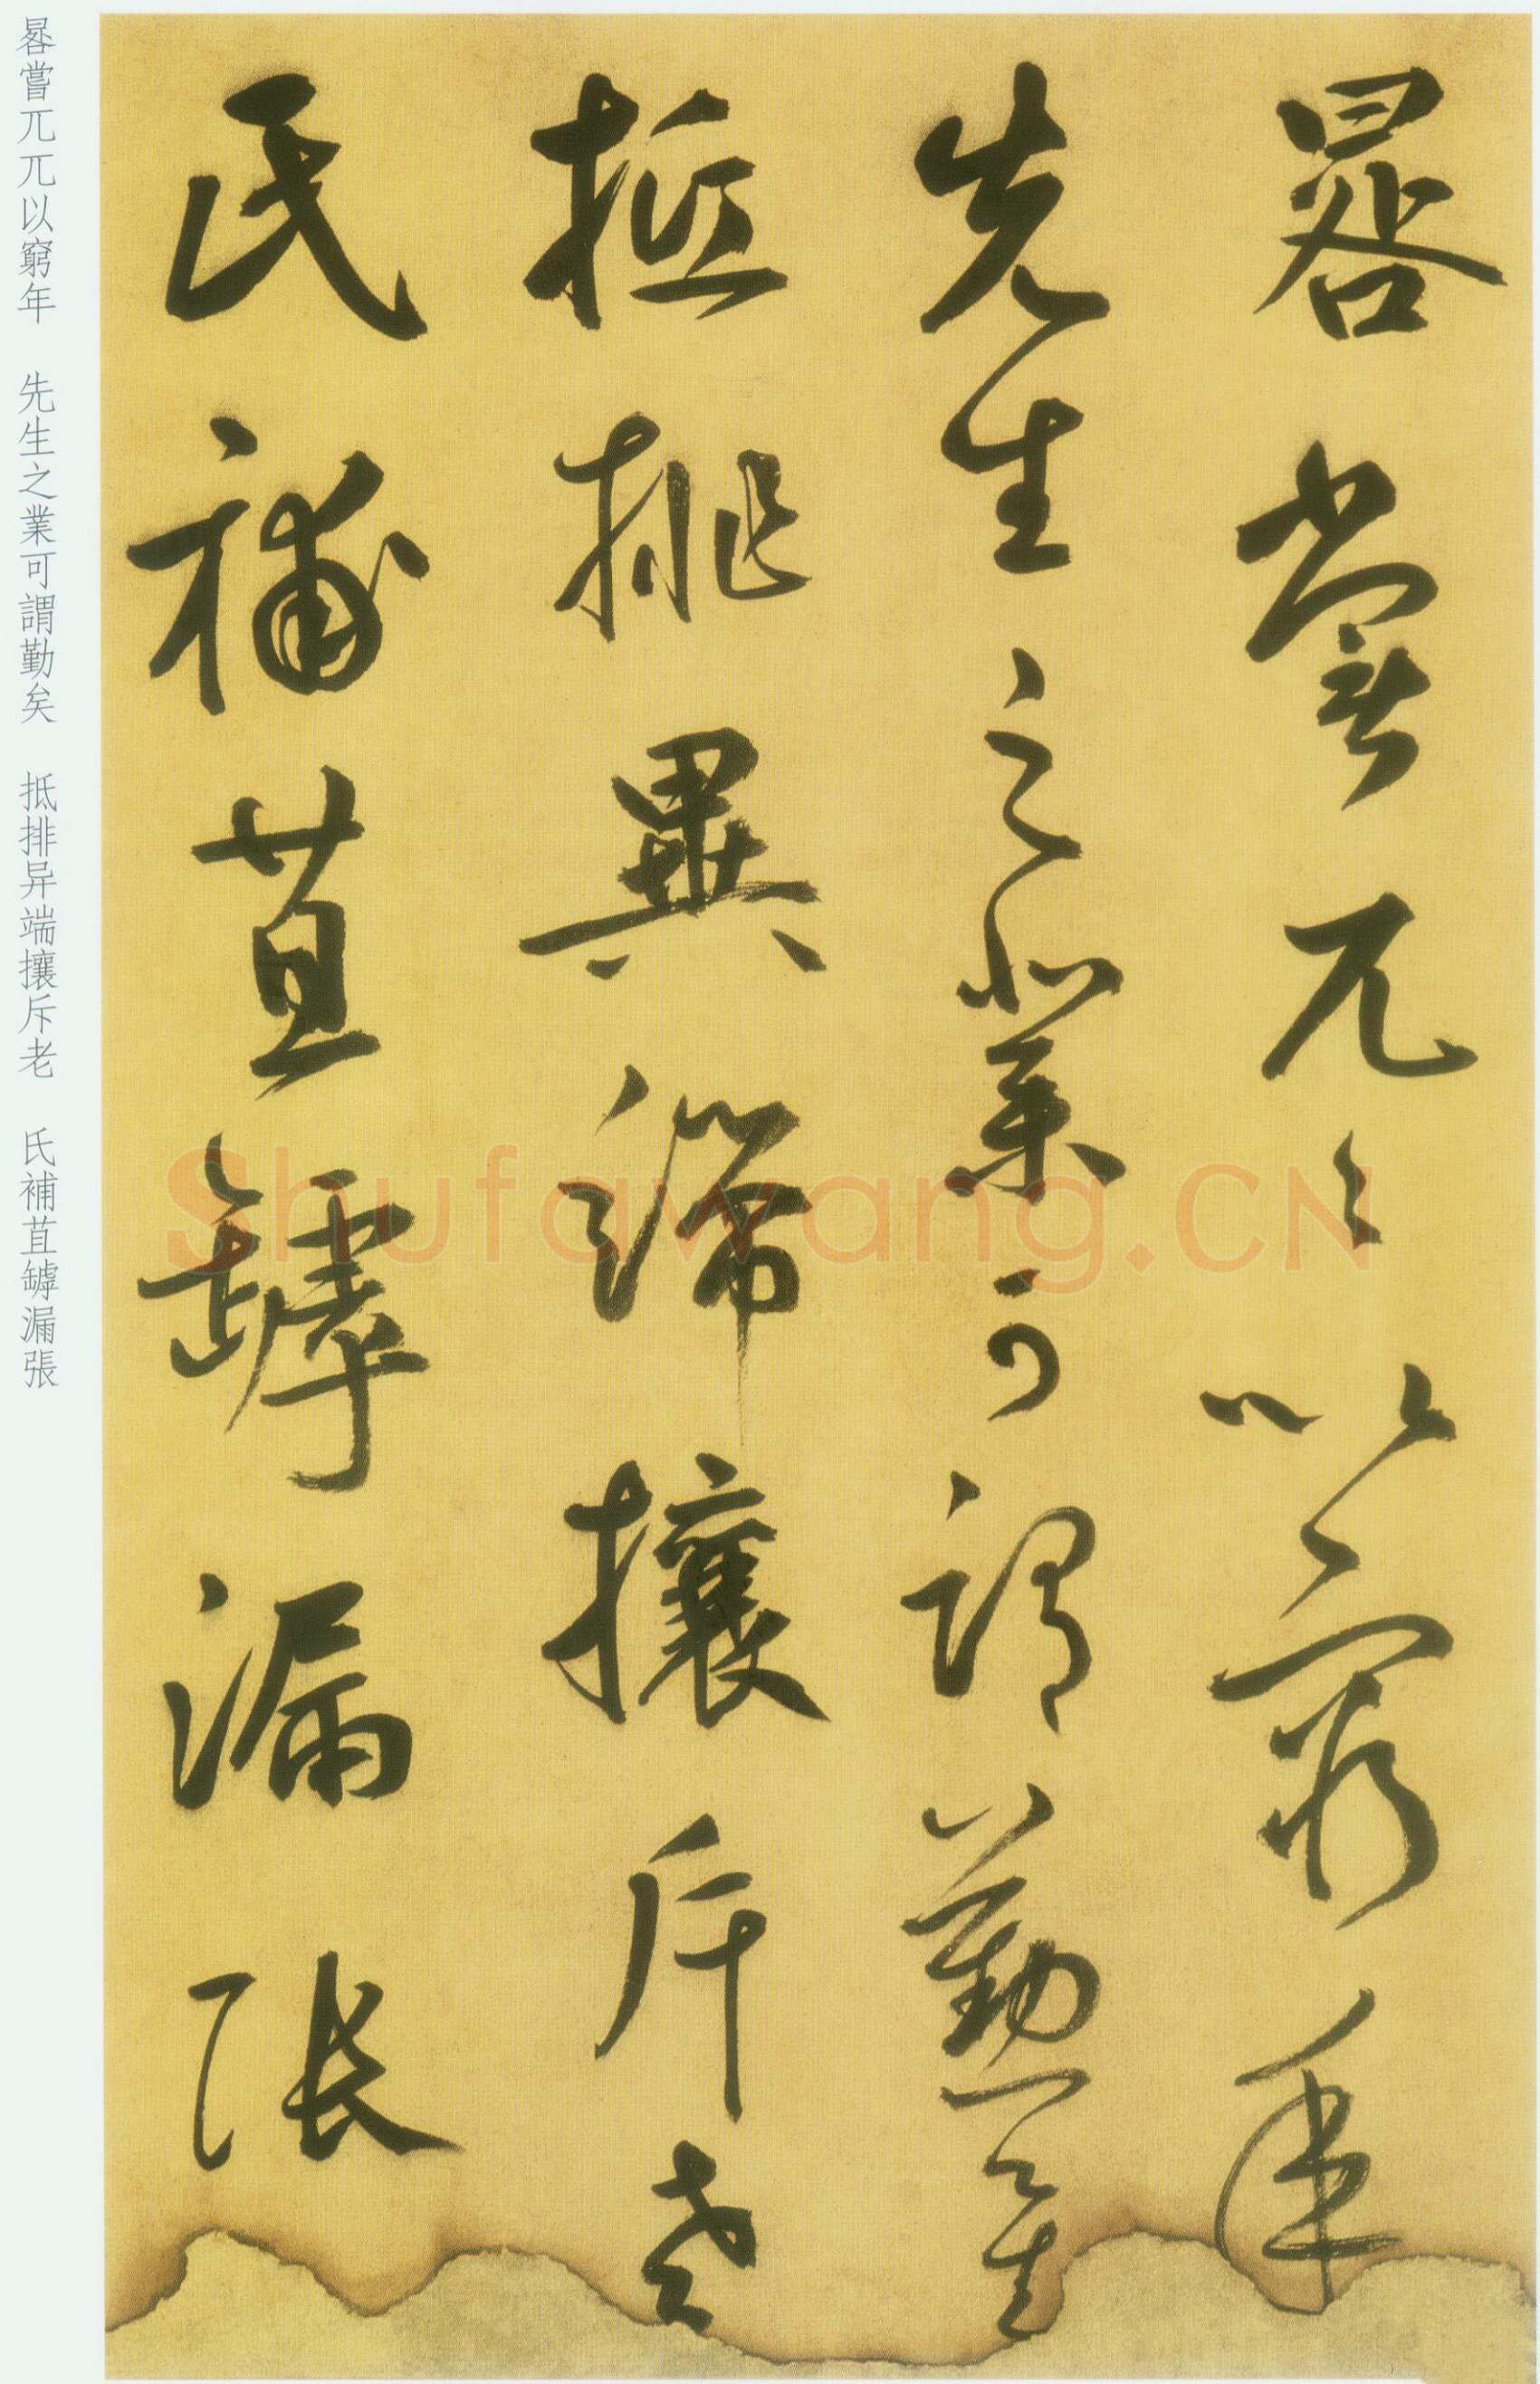 晷嘗兀々以窮年
先生之業可謂勤矣
抵排異端攘斥老
氏補苴罅漏張
晷嘗兀兀以窮年　先生之業可謂勤矣　抵排异端攘斥老　氏補苴罅漏張
Shufawang.CN